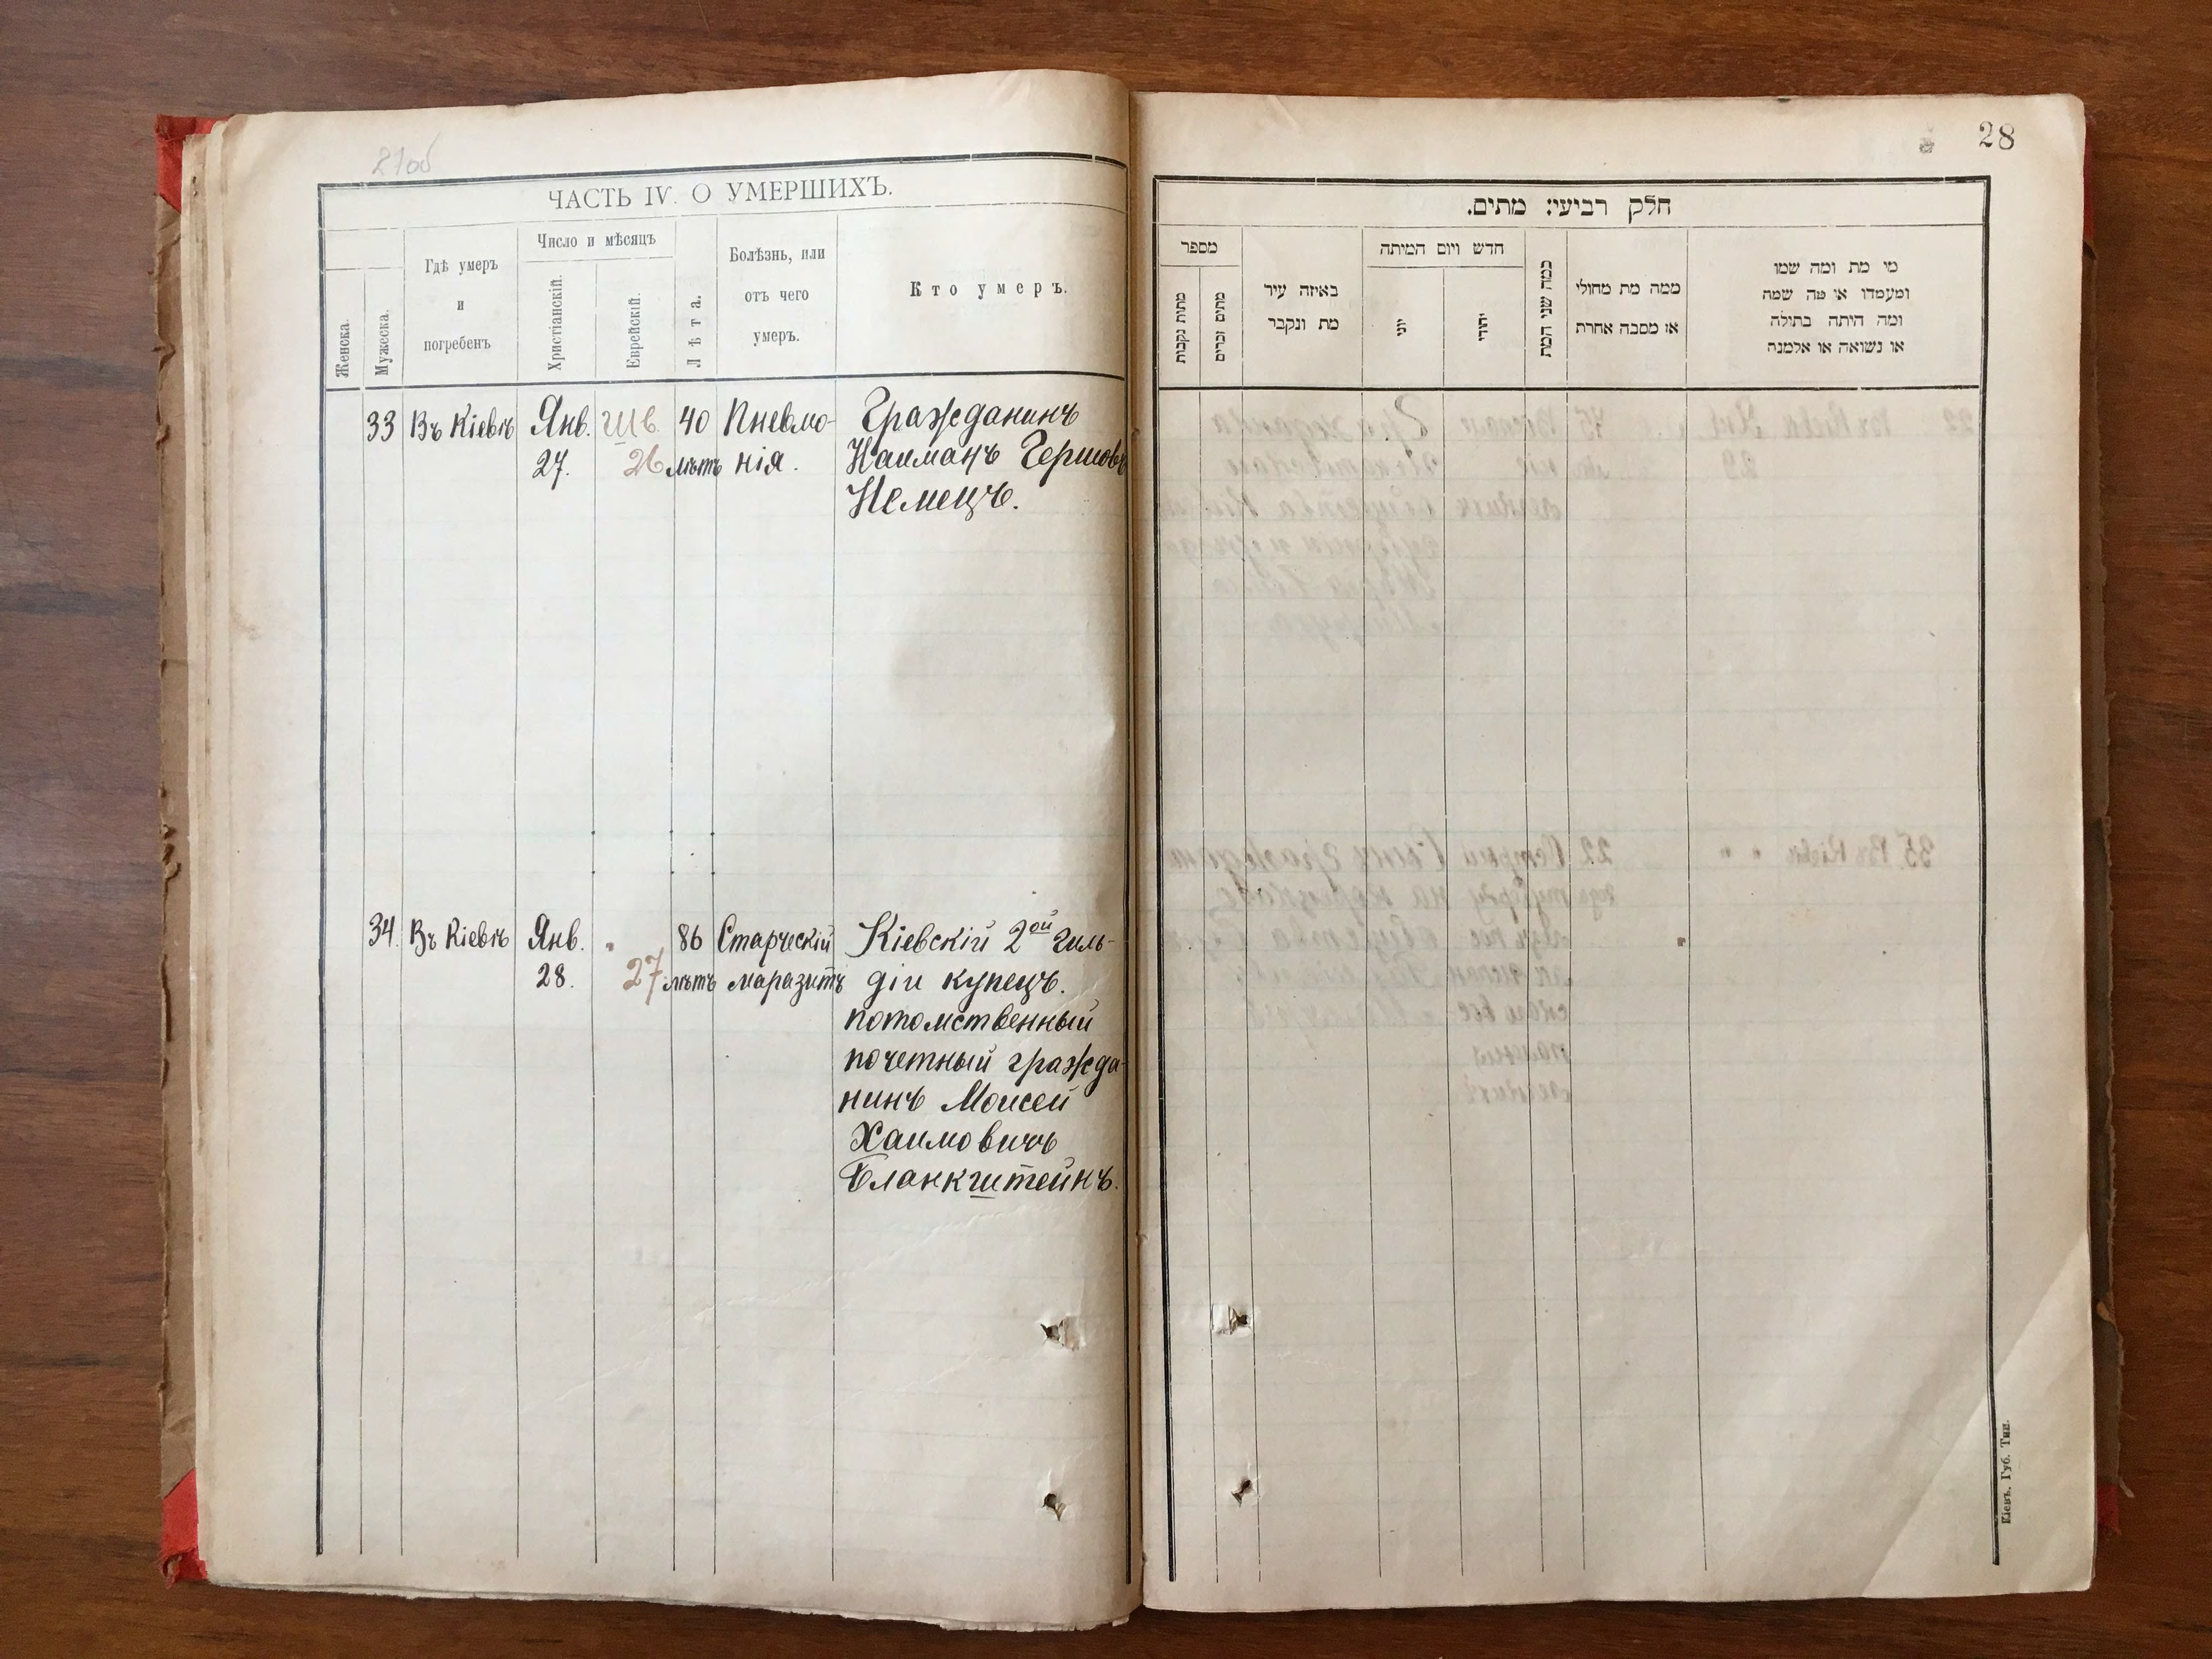 28
ЧАСТЬ IV. О УМЕРШИХЪ.
Женска.
Мужеска.
Гдѣ умеръ
и
погребенъ
Число и мѣсяцъ
Христіанскій.
Еврейскій.
Лѣта.
Болѣзнь, или
отъ чего
умеръ.
Кто умеръ.
33 Въ Кіевѣ Янв. Шв. 40 Пневмо- Гражданинъ
27. 26 лѣтъ нія. Наиманъ Гершовъ
Немецъ.
34. Въ Кіевѣ Янв. " 86 Старческій Кіевскій 2ой гиль-
28. 27 лѣтъ маразмъ діи купецъ.
потомственный
почетный гражда-
нинъ Моисей
Хаимовичъ
Бланкштейнъ.
חלק רביעי: מתים.
מספר
מתות נקבות
מתים זכרים
באיזה עיר
מת ונקבר
חדש ויום המיתה
יוני
יהודי
כמה שני המת
ממה מת מחולי
או מסבה אחרת
מי מת ומה שמו
ומעמדו או מה שמה
ומה היתה בתולה
או נשואה או אלמנה
Кіевъ, Губ. Тип.